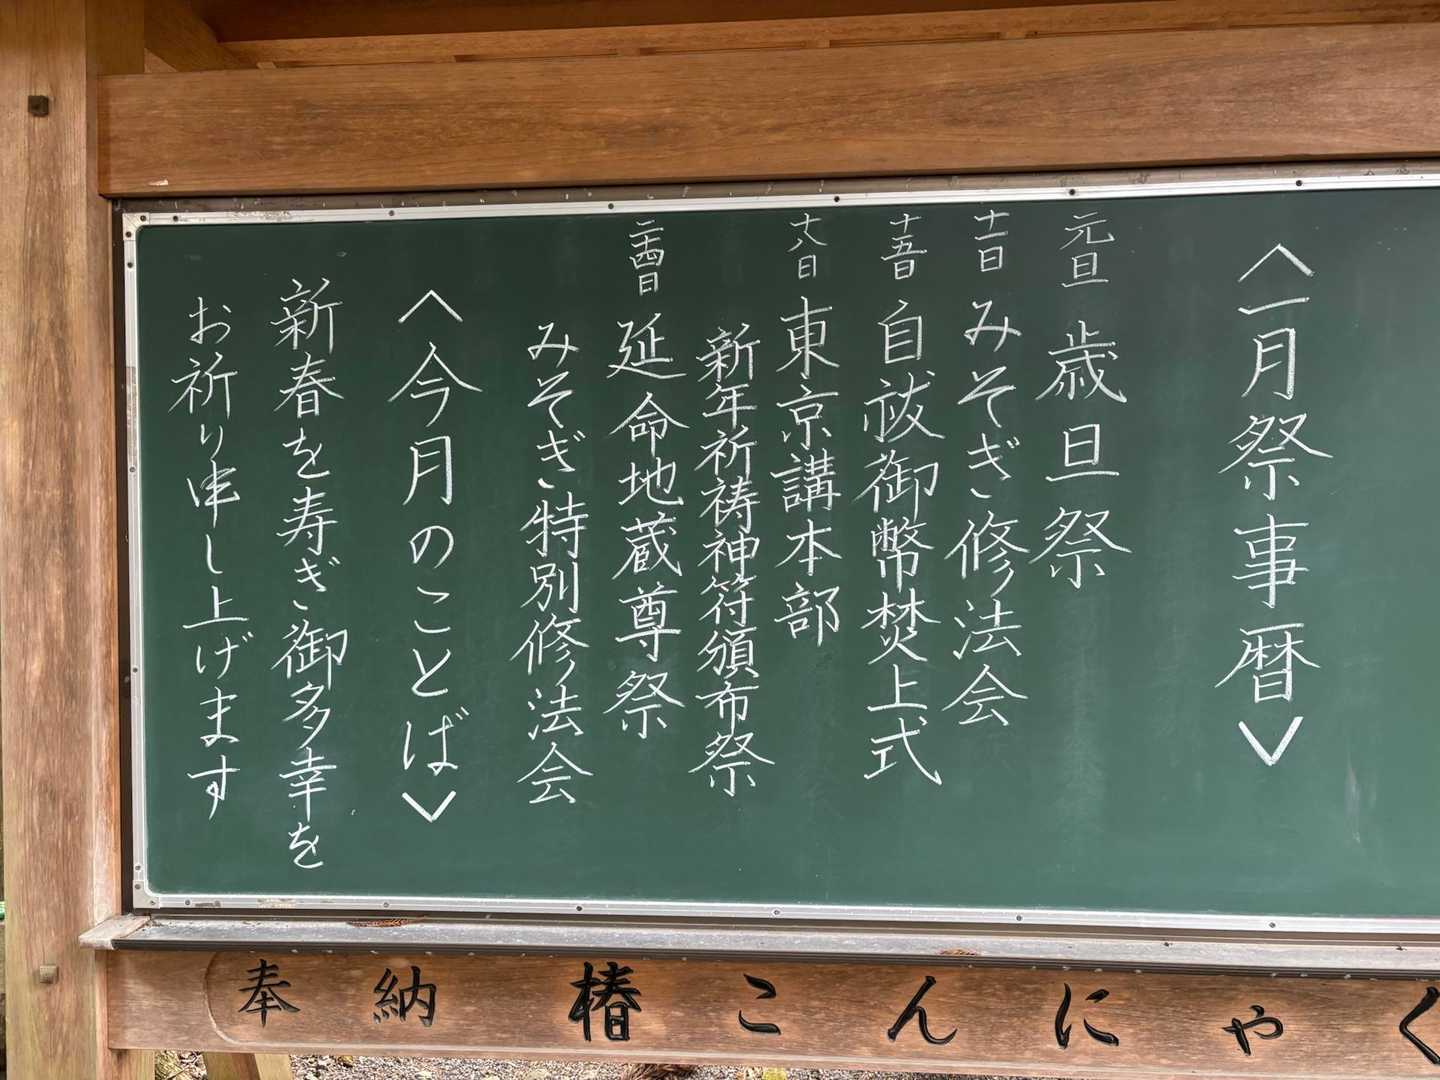 〈一月祭事暦〉
元旦 歳旦祭
十一日 みそぎ修法会
十五日 自祓御幣焚上式
十八日 東京講本部
新年祈祷神符頒布祭
二十四日 延命地蔵尊祭
みそぎ特別修法会
〈今月のことば〉
新春を寿ぎ御多幸を
お祈り申し上げます
奉納 椿こんにゃく